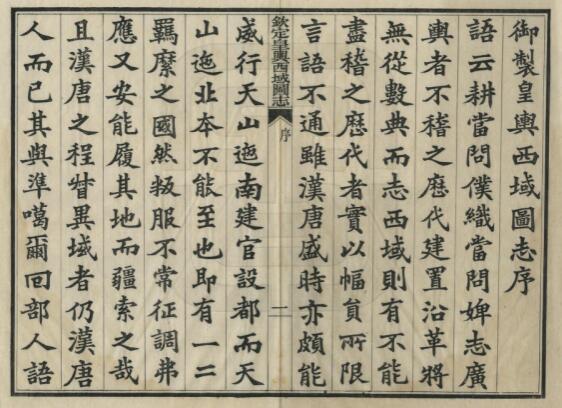 御製皇輿西域圖志序
語云耕當問僕織當問婢志廣
輿者不稽之厯代建置沿革將
無從數典而志西域則有不能
盡稽之厯代者實以幅員所限
言語不通雖漢唐盛時亦頗能
欽定皇輿西域圖志
序
二
威行天山迤南建官設都而天
山迤北夲不能至也即有一二
羈縻之國然叛服不常征調弗
應又安能履其地而疆索之哉
且漢唐之程督異域者仍漢唐
人而已其與準噶爾回部人語